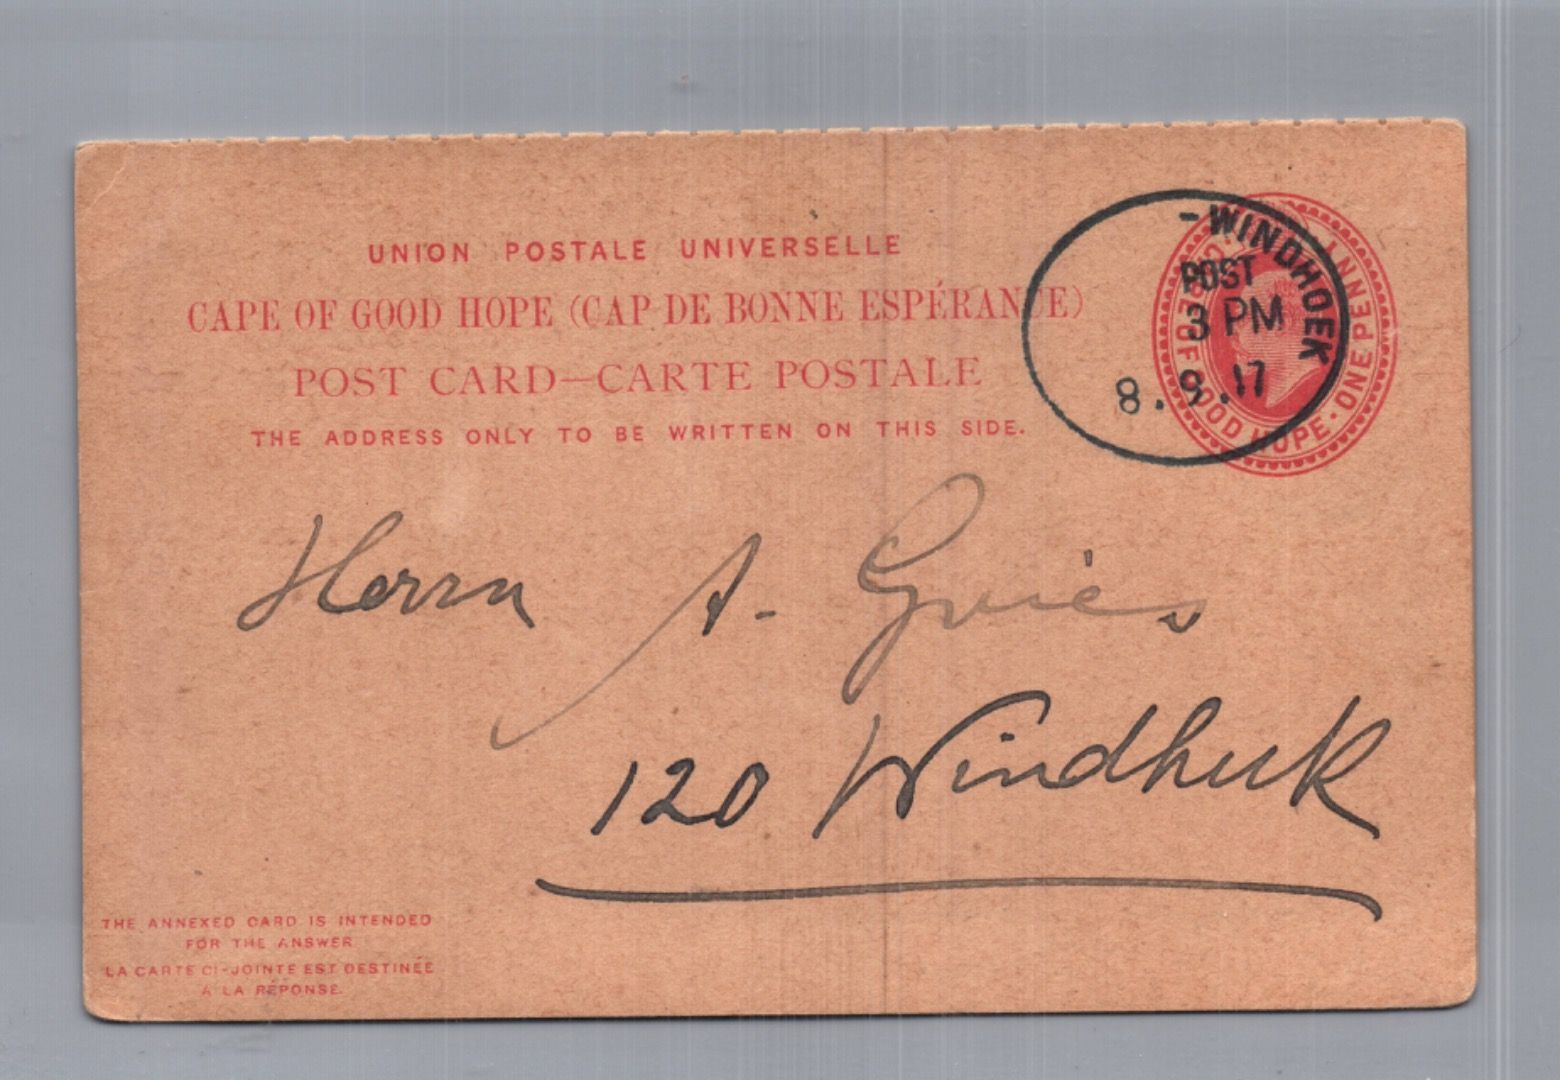 UNION POSTALE UNIVERSELLE
CAPE OF GOOD HOPE (CAP DE BONNE ESPÉRANCE)
POST CARD—CARTE POSTALE
THE ADDRESS ONLY TO BE WRITTEN ON THIS SIDE.
-WINDHOEK
POST
3 PM
8.9.17
CAPE OF GOOD HOPE · ONE PENNY
Herrn A. Gries
120 Windhuk
THE ANNEXED CARD IS INTENDED
FOR THE ANSWER
LA CARTE CI-JOINTE EST DESTINÉE
A LA RÉPONSE.